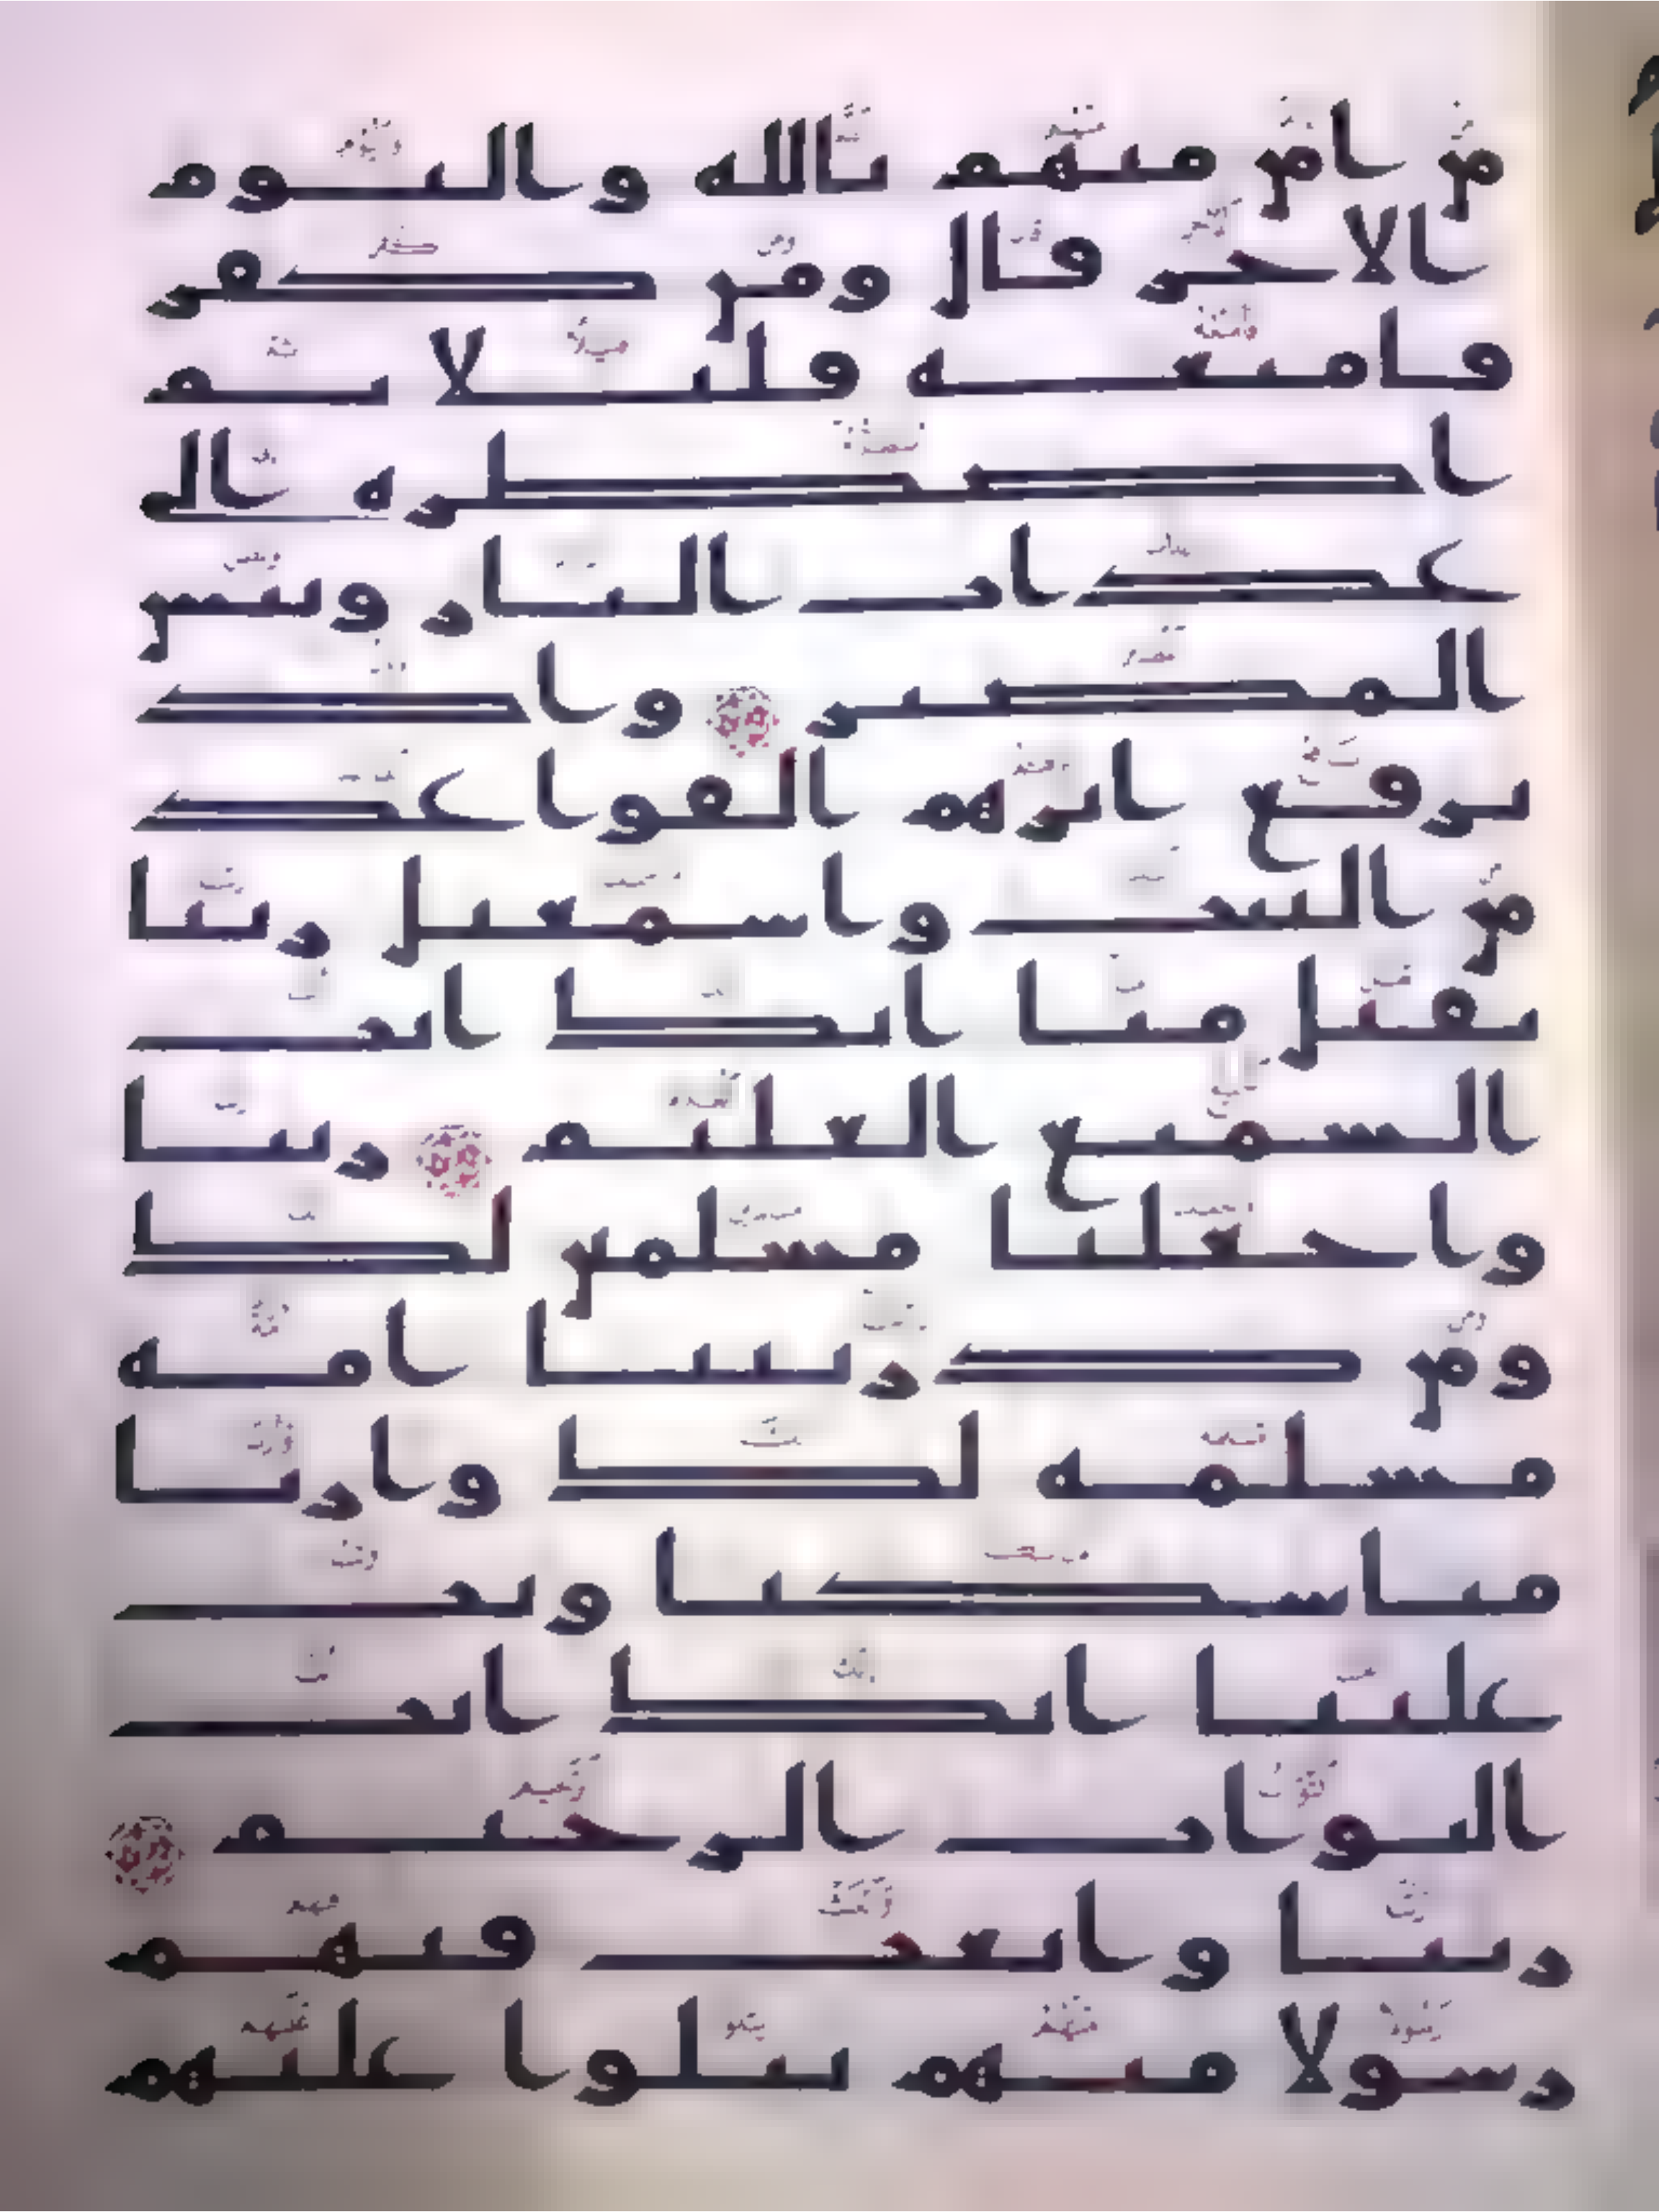 من امن منهم بالله واليوم
الاخر قال ومن كفر
فامتعه قليلا ثم
اضطره الى
عذاب النار وبئس
المصير واذ
يرفع ابرهم القواعد
من البيت واسمعيل ربنا
تقبل منا انك انت
السميع العليم ربنا
واجعلنا مسلمين لك
ومن ذريتنا امة
مسلمة لك وارنا
مناسكنا وتب
علينا انك انت
التواب الرحيم
ربنا وابعث فيهم
رسولا منهم يتلوا عليهم